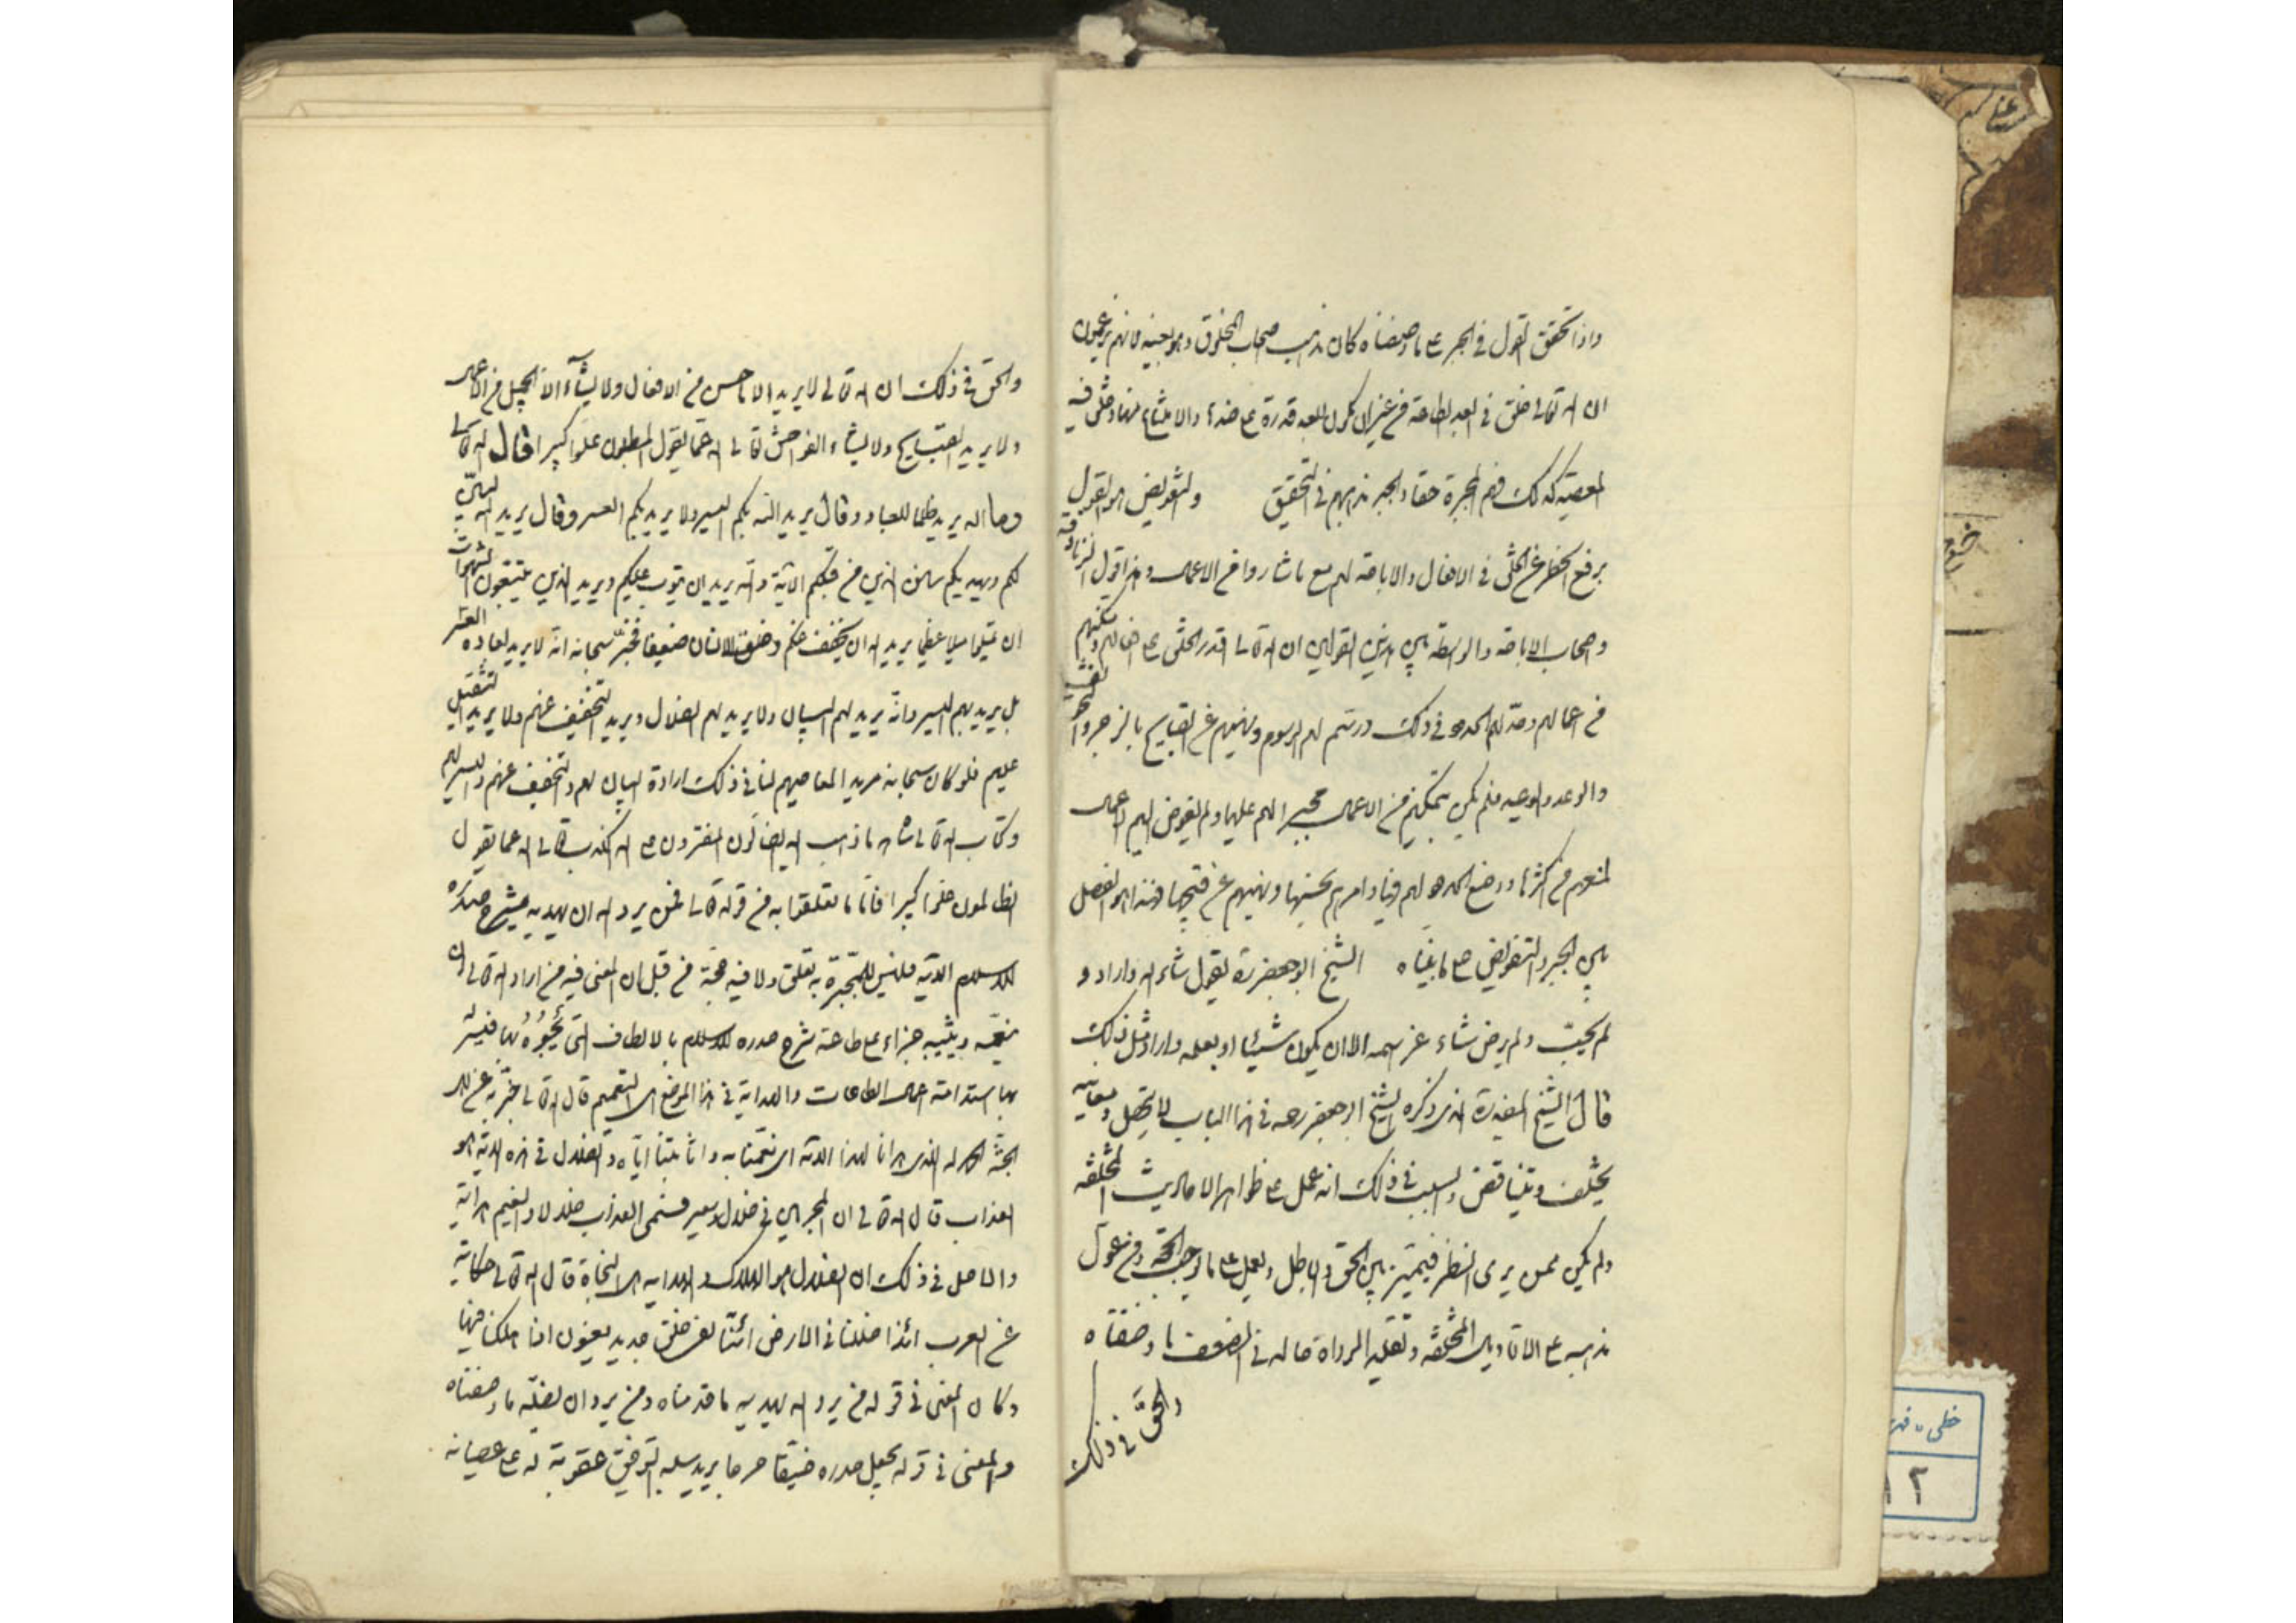 واذا تحقق القول في الجبر على ما وصفناه كان مذهب اصحاب المخلوق هو بعينه لانهم يزعمون
ان الله تعالى خلق في العبد الطاعة من غير ان يكون للعبد قدرة على ضدها والامتناع منها وخلق فيه
المعصية كذلك فهم المجبرة حقا والجبر مذهبهم في التحقيق والتفويض هو القول
برفع الحظر عن الخلق في الافعال والاباحة لهم مع ما شاءوا من الاعمال وهذا قول الزنادقة
واصحاب الاباحة والواسطة بين هذين القولين ان الله تعالى اقدر الخلق على افعالهم ومكنهم
من اعمالهم وحد لهم الحدود في ذلك ورسم لهم الرسوم ونهيهم عن القبايح بالزجر والتخويف
والوعد والوعيد فلم يكن بتمكينهم من الاعمال مجبرا لهم عليها ولم يفوض اليهم الاعمال
لمنعهم من اكثرها ووضع الحدود لهم فيها وامرهم بحسنها ونهيهم عن قبيحها فهذا هو الفصل
بين الجبر والتفويض على ما بيناه الشيخ ابو جعفر ره نقول شاء الله واراد و
لم يحب ولم يرض شاء عز اسمه الا ان يكون شيئا الا بعلمه واراد مثل ذلك
قال الشيخ المفيد ره الذى ذكره الشيخ ابو جعفر رحمه في هذا الباب لا يتحصل ومعانيه
يختلف ويتناقض والسبب في ذلك انه عمل على ظواهر الاحاديث المختلفه
ولم يكن ممن يرى النظر فيميز بين الحق والباطل ويعمل على ما يوجب الحجة ومن عول
مذهبه على الاقاويل المختلفه وتقليد الرواة حاله في الضعف ما وصفناه
والحق في ذلك
والحق في ذلك ان الله تعالى لا يريد الا ما حسن من الافعال ولا يشآء الا الجميل من الاعمال
ولا يريد القبايح ولا يشاء الفواحش تعالى الله عما يقول المبطلون علوا كبيرا قال الله تعالى
وما الله يريد ظلما للعباد وقال يريد الله بكم اليسر ولا يريد بكم العسر وقال يريد الله ليبين
لكم ويهديكم سنن الذين من قبلكم الآية والله يريد ان يتوب عليكم ويريد الذين يتبعون الشهوات
ان تميلوا ميلا عظيما يريد الله ان يخفف عنكم وخلق الانسان ضعيفا فخبر سبحانه انه لا يريد لعباده العسر
بل يريد بهم اليسر وانه يريد لهم البيان ولا يريد لهم الضلال ويريد التخفيف عنهم ولا يريد التثقيل
عليهم فلو كان سبحانه مريدا لمعاصيهم لنافى ذلك ارادة البيان لهم والتخفيف عنهم واليسر لهم
وكتاب الله تعالى شاهد بضد ما ذهب اليه الضالون المفترون على الله الكذب تعالى الله عما يقول
الظالمون علوا كبيرا فاما ما تعلقوا به من قوله تعالى فمن يرد الله ان يهديه يشرح صدره
للاسلام الآية فليس للمجبرة به تعلق ولا فيه حجة من قبل ان المعنى فيه من اراد الله تعالى ان
ينعمه ويثيبه جزاء على طاعته شرح صدره للاسلام بالالطاف التى يحبوه بها فييسر له
بها استدامة اعمال الطاعات والهداية في هذا الموضع هى التنعيم قال الله تعالى فيما خبر به عن اهل
الجنة الحمد لله الذى هدانا لهذا الآية اى نعمنا به واثابنا اياه والضلال في هذه الآية هو
العذاب قال الله تعالى ان المجرمين في ضلال وسعر فسمى العذاب ضلالا والنعيم هداية
والاصل في ذلك ان الضلال هو الهلاك والهداية هى النجاة قال الله تعالى حكاية
عن العرب ائذا ضللنا في الارض ائنا لفى خلق جديد يعنون اذا هلكنا فيها
وكان المعنى في قوله فمن يرد الله يهديه ما قدمناه ومن يرد ان يضله ما وصفناه
والمعنى في قوله يجعل صدره ضيقا حرجا يريد سلبه التوفيق عقوبة له على عصيانه